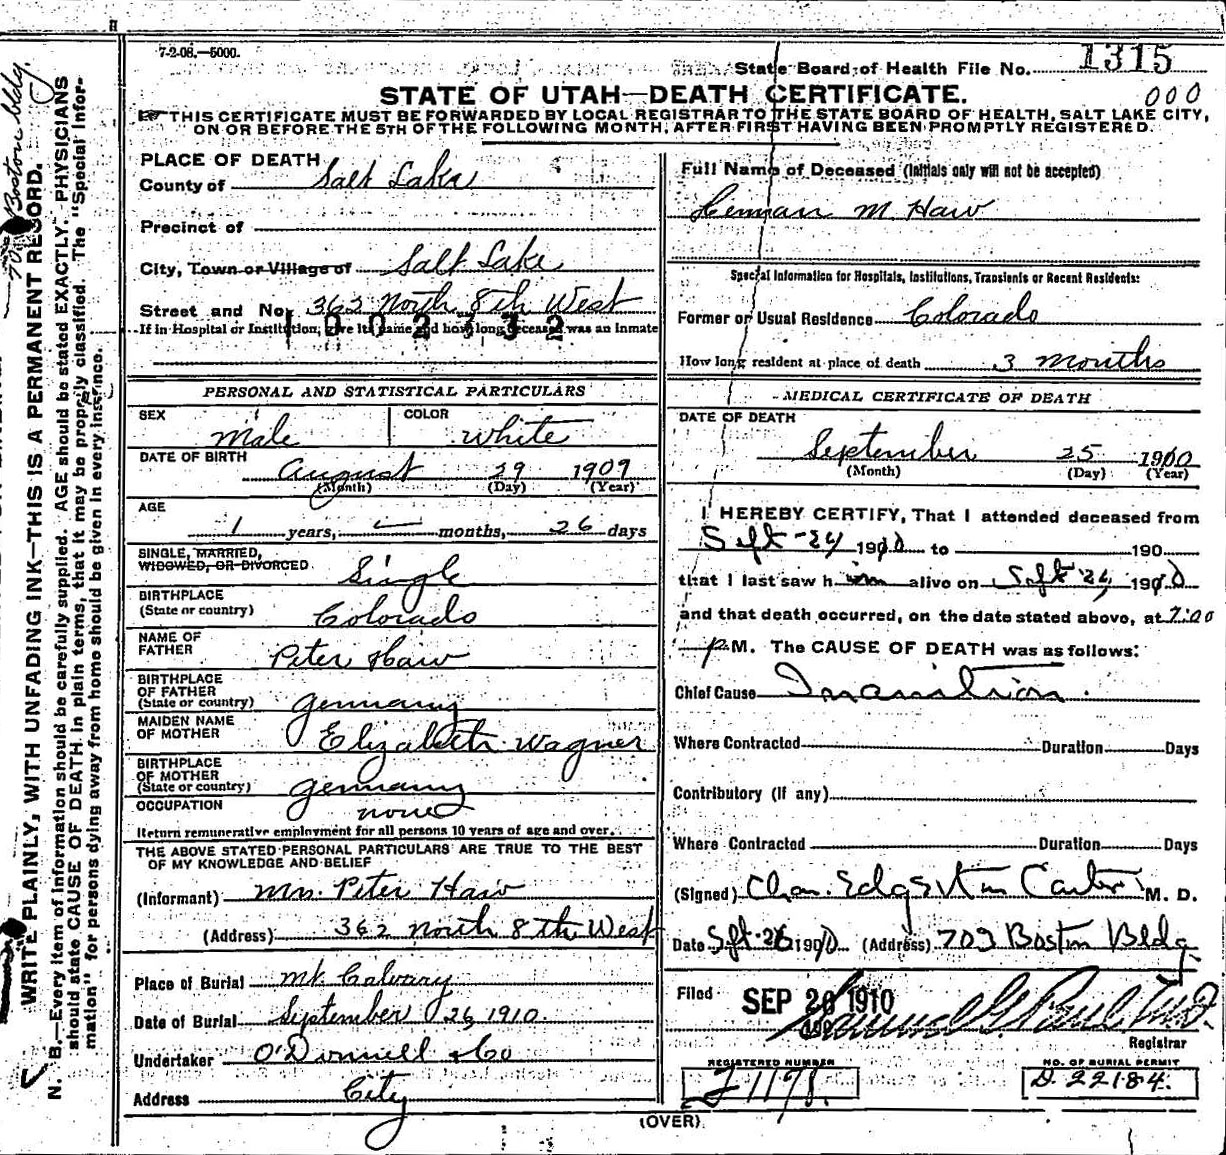 7-2-08.—5000.
State Board of Health File No. 1315
000
STATE OF UTAH—DEATH CERTIFICATE.
THIS CERTIFICATE MUST BE FORWARDED BY LOCAL REGISTRAR TO THE STATE BOARD OF HEALTH, SALT LAKE CITY,
ON OR BEFORE THE 5TH OF THE FOLLOWING MONTH, AFTER FIRST HAVING BEEN PROMPTLY REGISTERED.
PLACE OF DEATH
County of Salt Lake
Precinct of
City, Town or Village of Salt Lake
Street and No. 362 North 8th West
If in Hospital or Institution, give its name and how long deceased was an inmate
PERSONAL AND STATISTICAL PARTICULARS
SEX Male COLOR White
DATE OF BIRTH August 29 1909
(Month) (Day) (Year)
AGE
1 years, months, 26 days
SINGLE, MARRIED,
WIDOWED, OR DIVORCED Single
BIRTHPLACE
(State or country) Colorado
NAME OF
FATHER Peter Haw
BIRTHPLACE
OF FATHER
(State or country) Germany
MAIDEN NAME
OF MOTHER Elizabeth Wagner
BIRTHPLACE
OF MOTHER
(State or country) Germany
OCCUPATION none
Return remunerative employment for all persons 10 years of age and over.
THE ABOVE STATED PERSONAL PARTICULARS ARE TRUE TO THE BEST
OF MY KNOWLEDGE AND BELIEF
(Informant) Mrs. Peter Haw
(Address) 362 North 8th West
Place of Burial Mt Calvary
Date of Burial September 26 1910
Undertaker O'Donnell & Co
Address City
Full Name of Deceased (Initials only will not be accepted)
Herman M Haw
Special Information for Hospitals, Institutions, Transients or Recent Residents:
Former or Usual Residence Colorado
How long resident at place of death 3 months
MEDICAL CERTIFICATE OF DEATH
DATE OF DEATH
September 25 1910
(Month) (Day) (Year)
I HEREBY CERTIFY, That I attended deceased from
Sept-24 1910 to 190
that I last saw him alive on Sept 24, 1910
and that death occurred, on the date stated above, at 7:00
P.M. The CAUSE OF DEATH was as follows:
Chief Cause Inanition.
Where Contracted Duration Days
Contributory (if any)
Where Contracted Duration Days
(Signed) Chas. Edgerton Carter M. D.
Date Sept-26 1910 (Address) 709 Boston Bldg.
Filed SEP 26 1910
Registrar
REGISTERED NUMBER
J 1178.
NO. OF BURIAL PERMIT
D. 22184.
(OVER)
WRITE PLAINLY, WITH UNFADING INK—THIS IS A PERMANENT RECORD.
N. B.—Every item of information should be carefully supplied. AGE should be stated EXACTLY. PHYSICIANS
should state CAUSE OF DEATH in plain terms, that it may be properly classified. The "Special Infor-
mation" for persons dying away from home should be given in every instance.